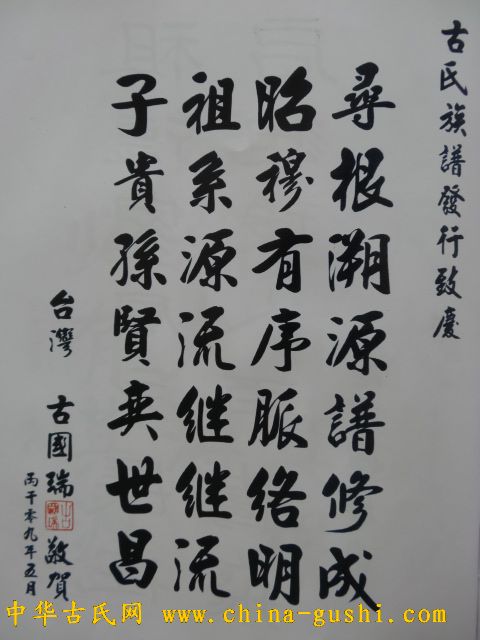 古氏族譜發行致慶
尋根溯源譜修成
昭穆有序脈絡明
祖系源流继继流
子貴孫賢奕世昌
台灣 古國瑞 敬賀
两千零九年五月
中华古氏网 www.china-gushi.com